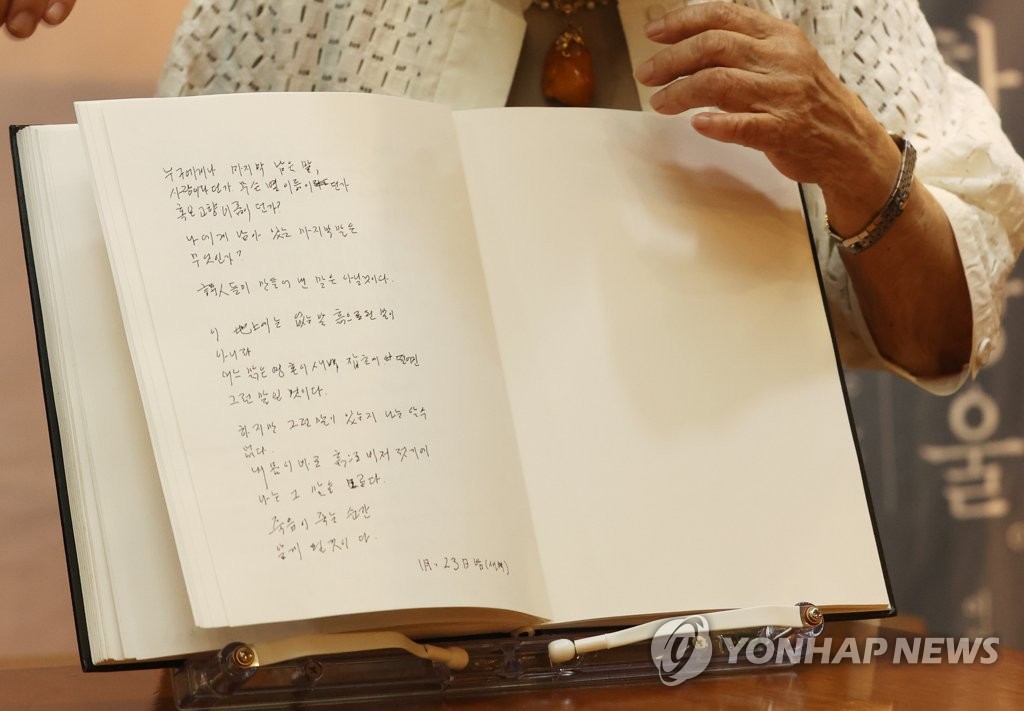 누구에게나 마지막 남은 말,
사랑이라던가 무슨 별 이름이던가
혹은 고향 이름이던가?
나에게 남아 있는 마지막 말은
무엇인가?
詩人들이 만들어 낸 말은 아닐것이다.
이 地上에는 없는 말 흙으로된 말이
아니라
어느 맑은 영혼이 새벽 잡초에 떨어뜨린
그런 말일 것이다.
하지만 그런 말이 있는지 나는 알수
없다.
내 몸이 바로 흙으로 빚어졌기에
나는 그 말을 모른다.
죽음이 죽는 순간
알게 될것이다.
1月. 23日 밤(새벽)
울
YONHAP NEWS